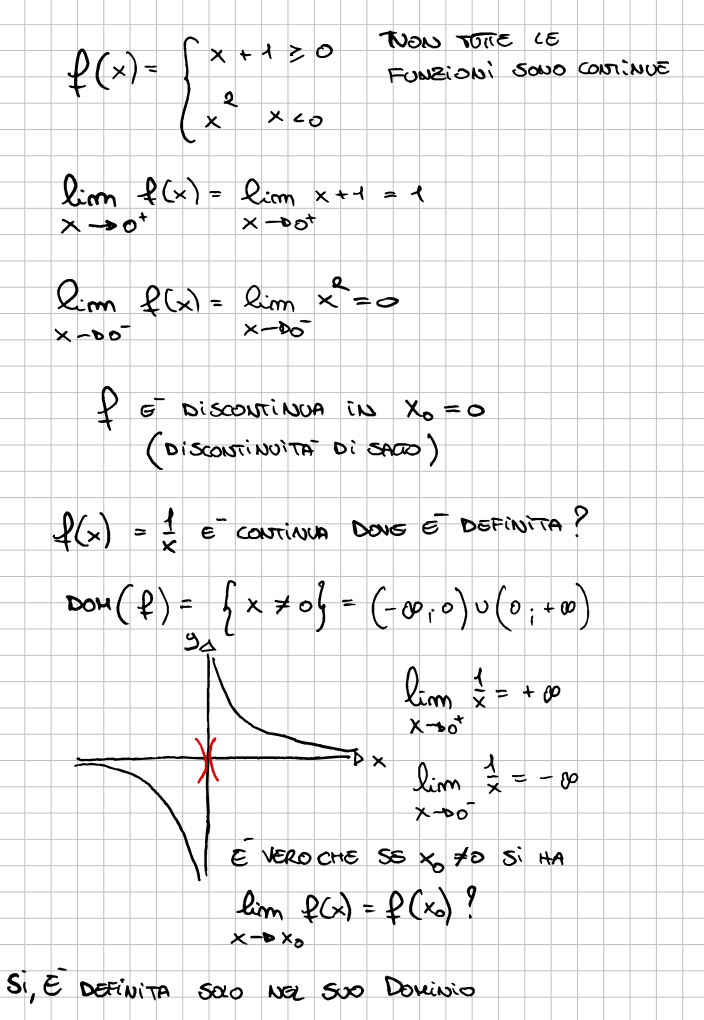 f(x) = { x + 1 ≥ 0 NON TUTTE LE
x² x < 0 FUNZIONI SONO CONTINUE
lim f(x) = lim x + 1 = 1
x → 0⁺ x → 0⁺
lim f(x) = lim x² = 0
x → 0⁻ x → 0⁻
f E⁻ DISCONTINUA IN x₀ = 0
(DISCONTINUITA⁻ DI SALTO)
f(x) = 1/x E⁻ CONTINUA DOVE E⁻ DEFINITA?
DOM(f) = {x ≠ 0} = (-∞; 0) ∪ (0; +∞)
y
x
lim 1/x = + ∞
x → 0⁺
lim 1/x = - ∞
x → 0⁻
E⁻ VERO CHE SE x₀ ≠ 0 SI HA
lim f(x) = f(x₀)?
x → x₀
SI, E⁻ DEFINITA SOLO NEL SUO DOMINIO